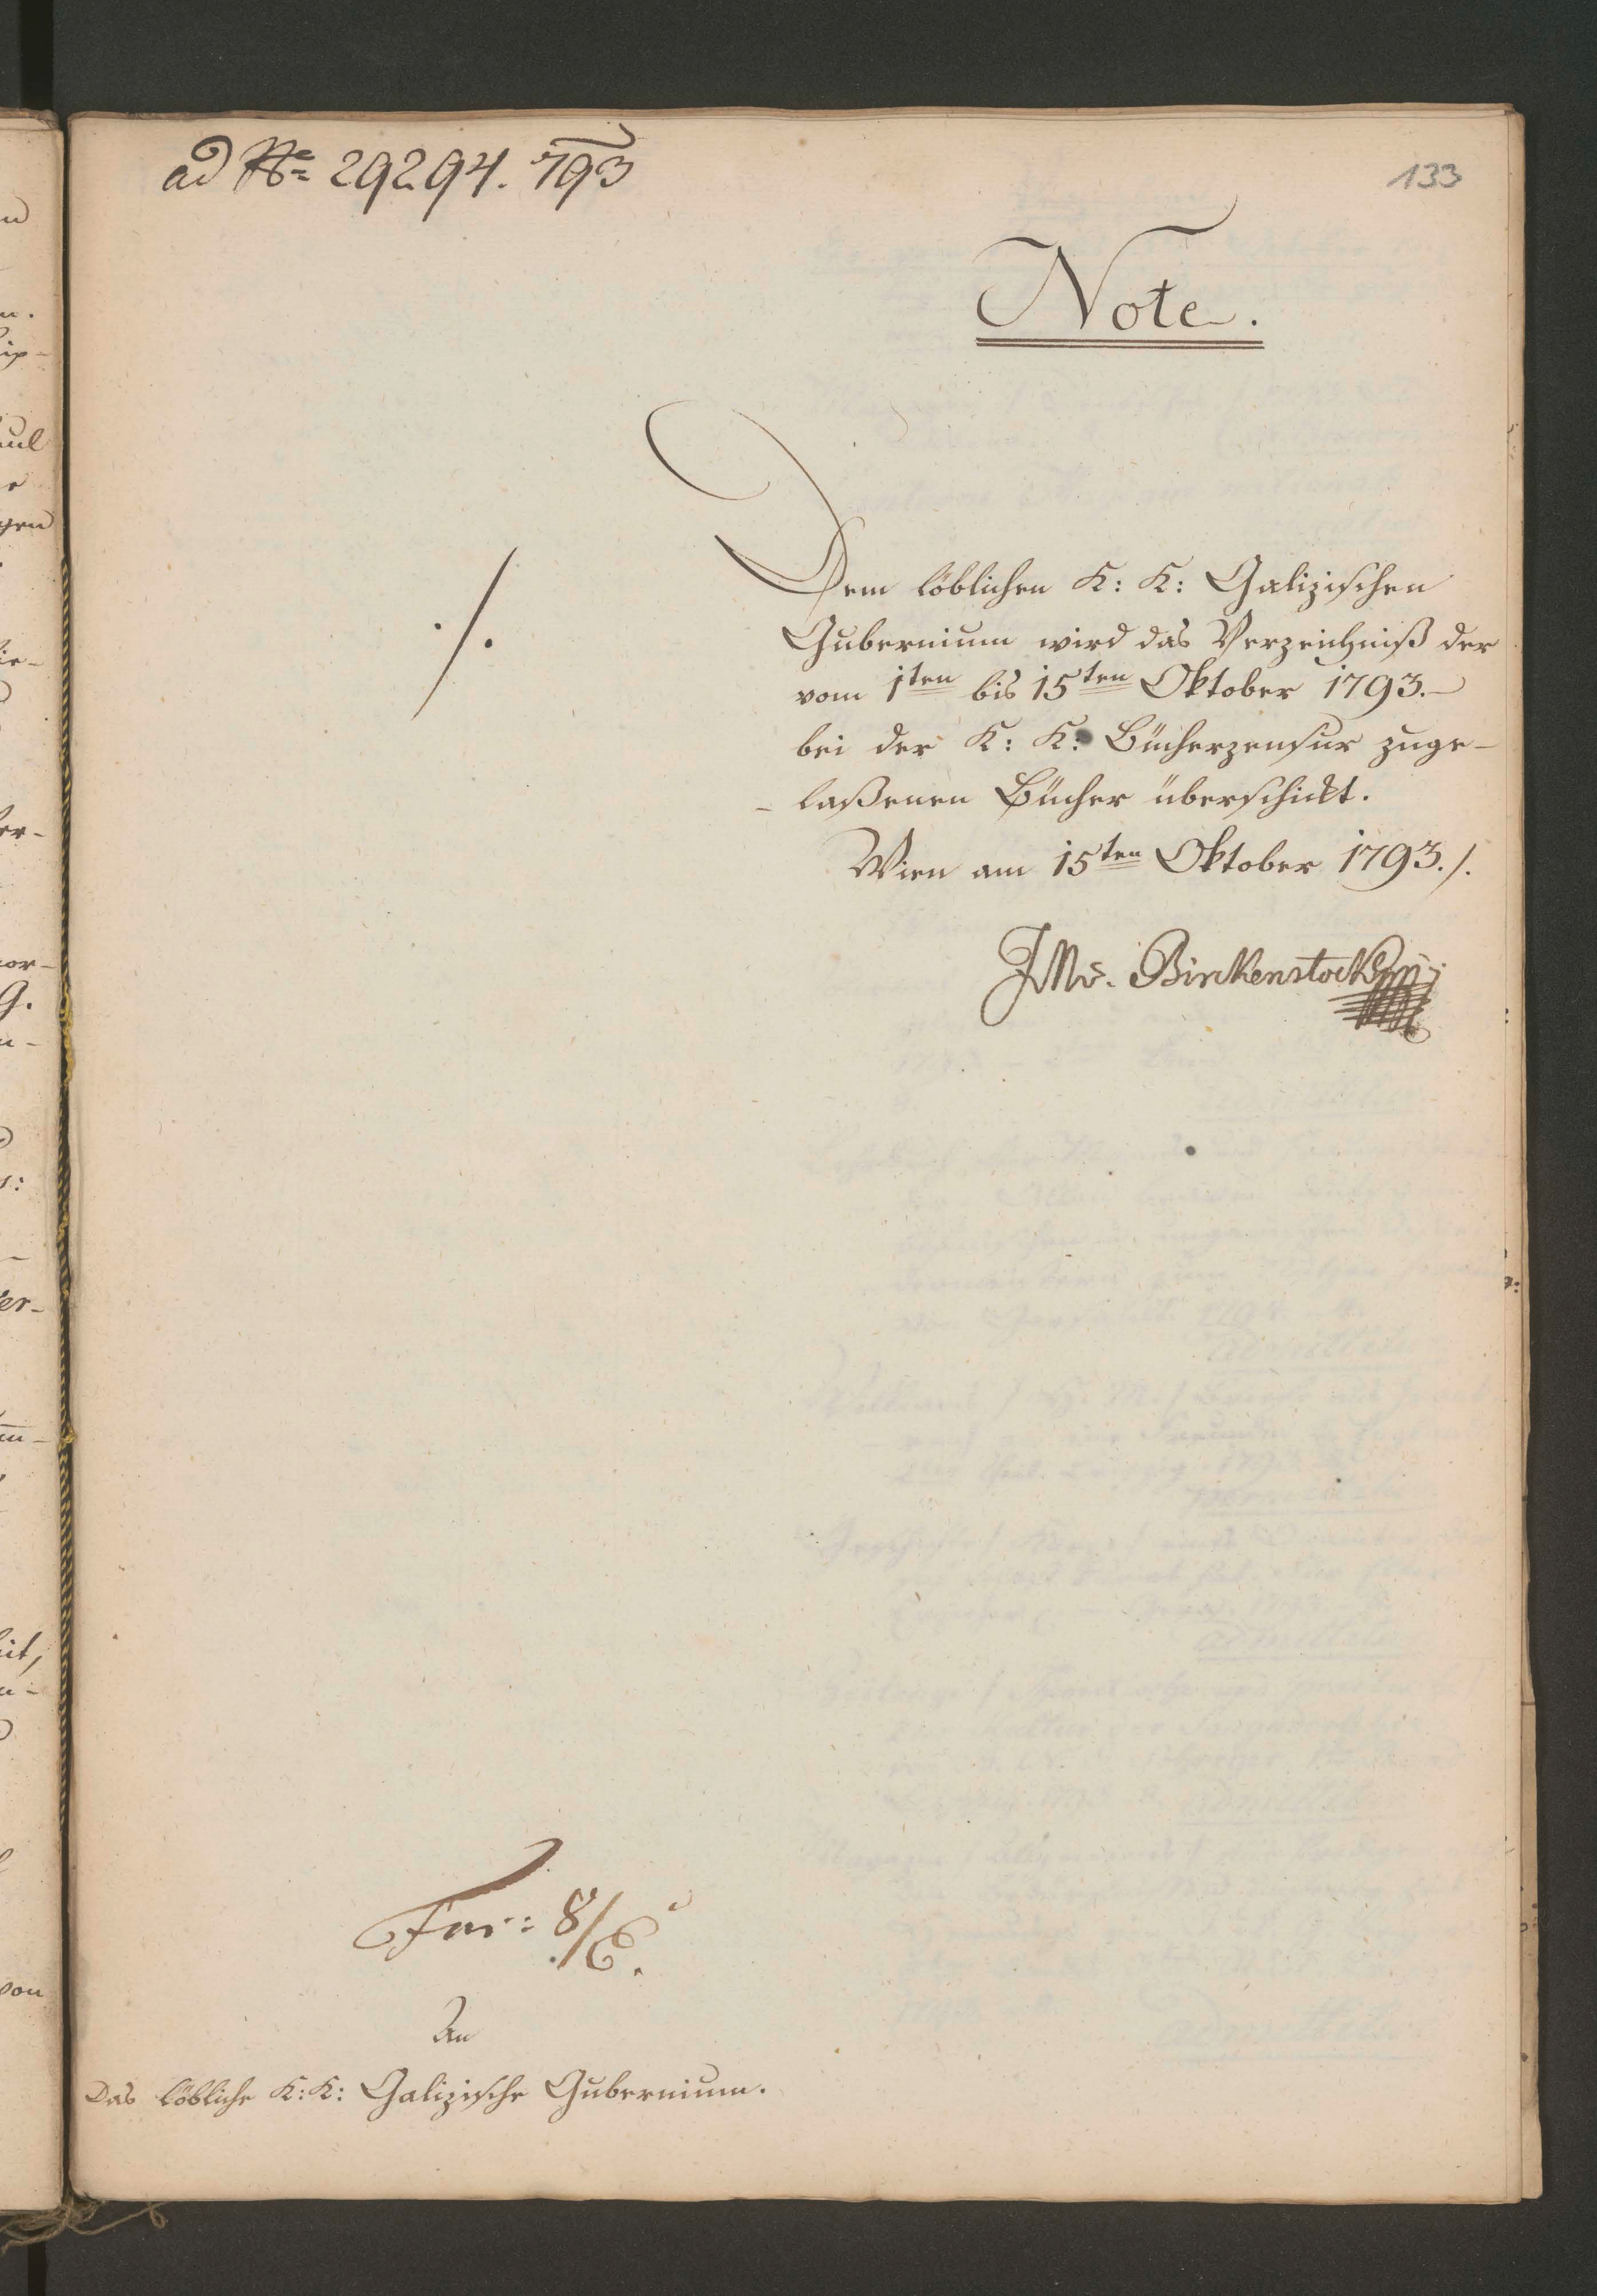 ad No 29294. 793
133
Note.
Dem löblichen K: K: Galizischen
Gubernium wird das Verzeichniß der
vom 1ten bis 15ten Oktober 1793.
bei der K: K: Bücherzensur zuge-
-laßenen Bücher überschickt.
Wien am 15ten Oktober 1793./.
./.
JMv. Birkenstock
8/
An
Das löbliche K: K: Galizische Gubernium.